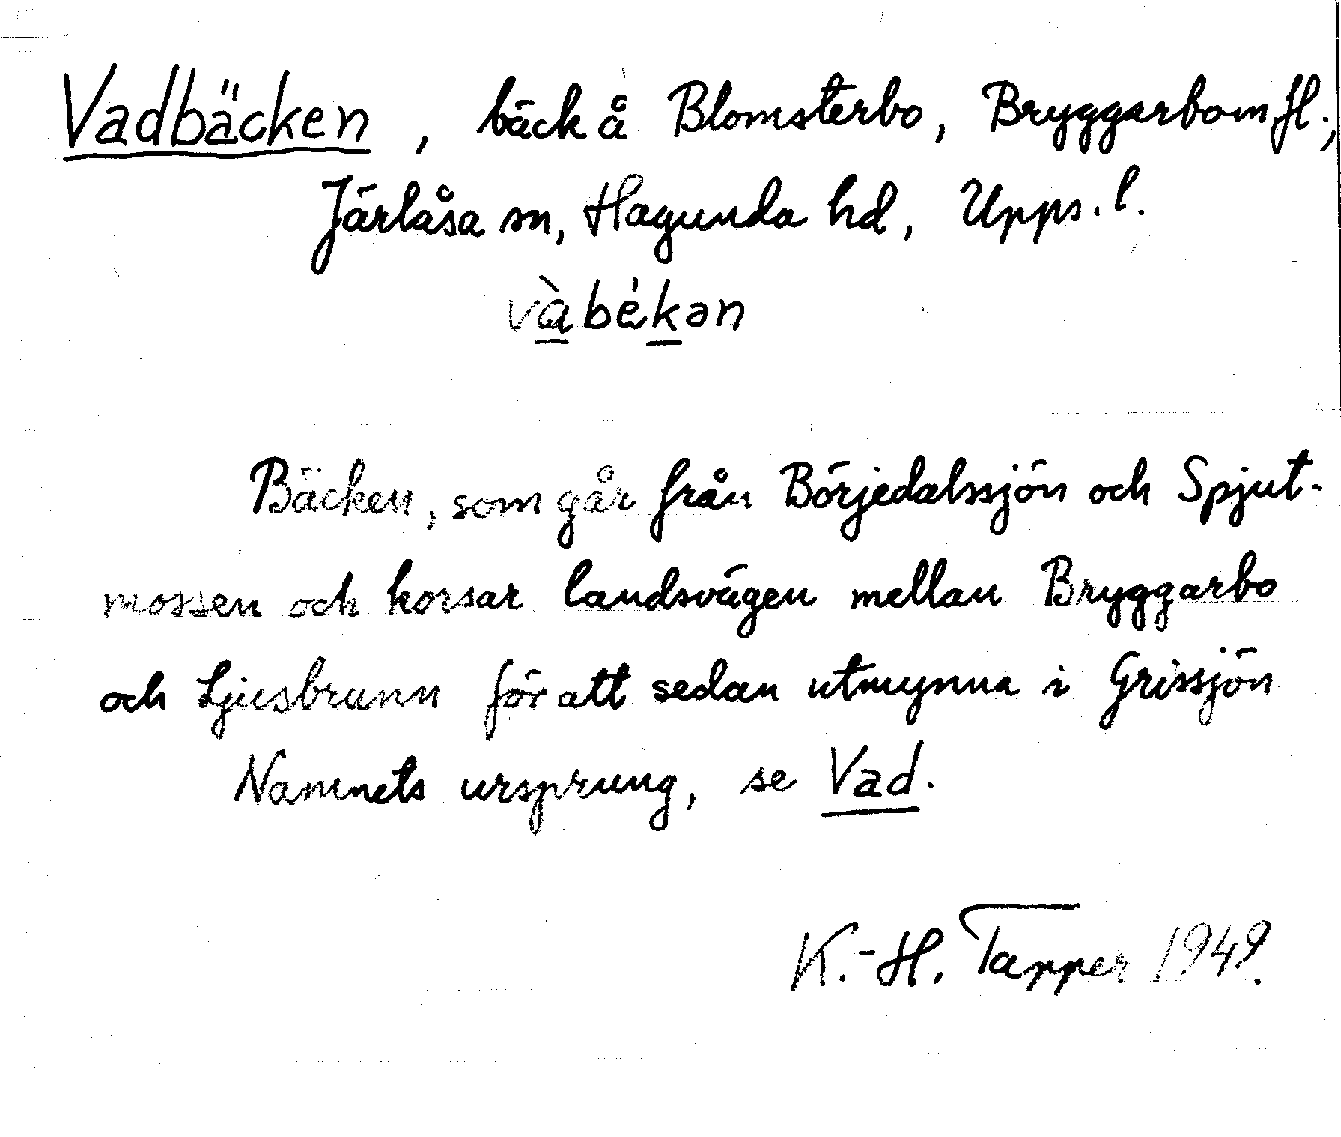 Vadbäcken, bäck å Blomsterbo, Bryggarbom fl.,
Järlåsa sn, Hagunda hd, Upps. l.
và̱béḵən
Bäcken, som går från Börjedalssjön och Spjut-
mossen och korsar landsvägen mellan Bryggarbo
och Ljusbrunn för att sedan utmynna i Grissjön
Namnets ursprung, se Vad.
K.-H. Tapper 1949.